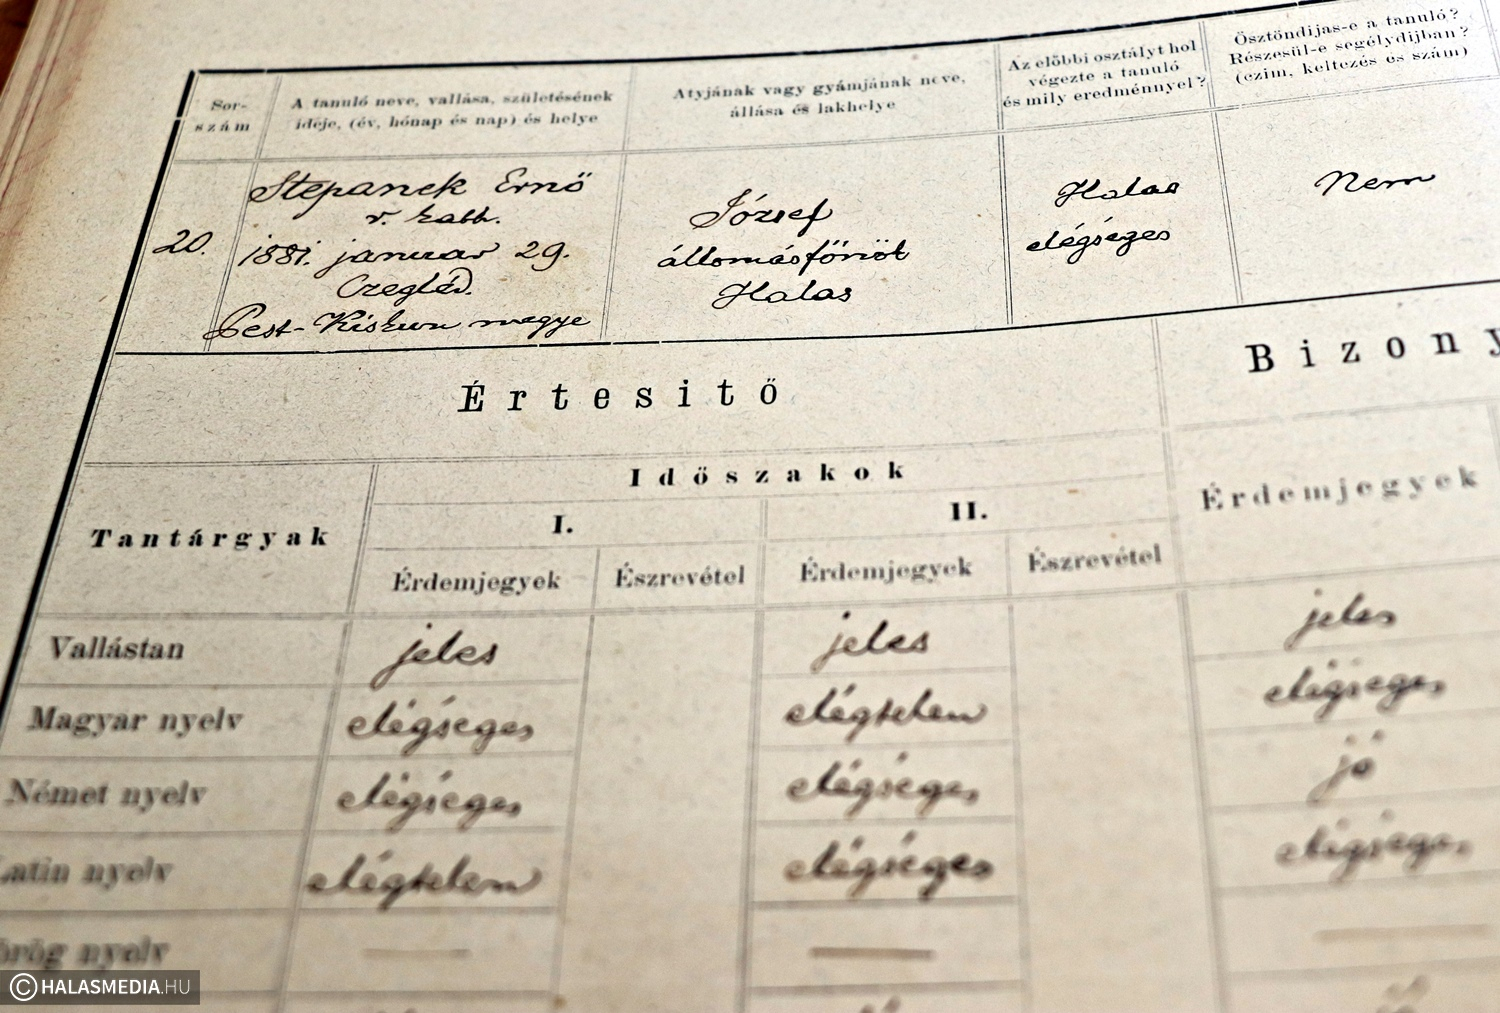 Sor-
szám
A tanuló neve, vallása, születésének
ideje, (év, hónap és nap) és helye
Atyjának vagy gyámjának neve,
állása és lakhelye
Az előbbi osztályt hol
végezte a tanuló
és mily eredménnyel?
Ösztöndijas-e a tanuló?
Részesül-e segélydijban?
(czim, keltezés és szám)
20.
Stepanek Ernő
r. kath.
1881. januar 29.
Czegléd.
Pest-Kiskun megye
József
állomásfőnök
Halas
Halas
elégséges
Nem
Értesitő
Bizony
Tantárgyak
Időszakok
I.
II.
Érdemjegyek
Észrevétel
Érdemjegyek
Észrevétel
Érdemjegyek
Vallástan jeles jeles jeles
Magyar nyelv elégséges elégtelen elégséges
Német nyelv elégséges elégséges jó
Latin nyelv elégtelen elégséges elégséges
örög nyelv — — —
©HALASMEDIA.HU